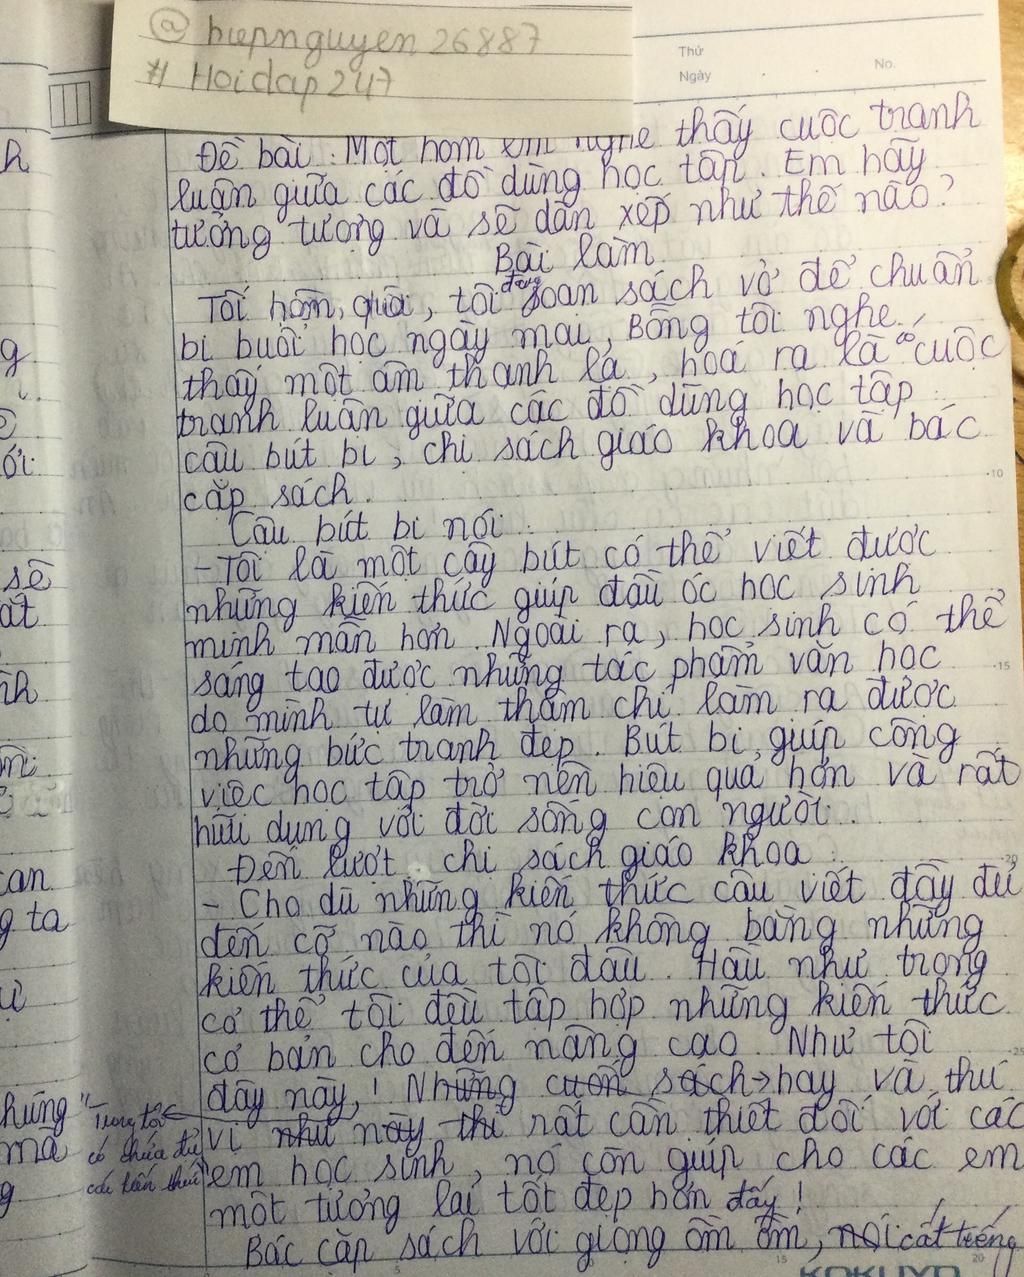 @ hiepnguyen26887
# Hoidap247
Thứ
Ngày . .
No.
Đề bài : Một hôm em nghe thấy cuộc tranh
luận giữa các đồ dùng học tập. Em hãy
tưởng tượng và sẽ dàn xếp như thế nào?
Bài làm
Tối hôm qua, tôi đang soạn sách vở để chuẩn
bị buổi học ngày mai, Bỗng tôi nghe
thấy một âm thanh lạ, hoá ra là cuộc
tranh luận giữa các đồ dùng học tập
cậu bút bi, chị sách giáo khoa và bác
cặp sách.
Cậu bút bi nói :
- Tôi là một cây bút có thể viết được
những kiến thức giúp đầu óc học sinh
minh mẫn hơn. Ngoài ra, học sinh có thể
sáng tạo được những tác phẩm văn học
do mình tự làm thậm chí làm ra được
những bức tranh đẹp. Bút bi giúp công
việc học tập trở nên hiệu quả hơn và rất
hữu dụng với đời sống con người.
Đến lượt chị sách giáo khoa :
- Cho dù những kiến thức cậu viết đầy đủ
đến cỡ nào thì nó không bằng những
kiến thức của tôi đâu. Hầu như trong
cơ thể tôi đều tập hợp những kiến thức
cơ bản cho đến nâng cao. Như tôi
đây này! Những cuốn sách hay và thú
vị như này thì rất cần thiết đối với các
em học sinh, nó còn giúp cho các em
một tương lai tốt đẹp hơn đấy!
Bác cặp sách với giọng ồm ồm, nói cất tiếng
Trong tôi
có chứa đủ
các kiến thức
h
g
ới
sẽ
ất
can
g ta
húng
mà
g
10
15
20
25
5
15
20
KOKUYO